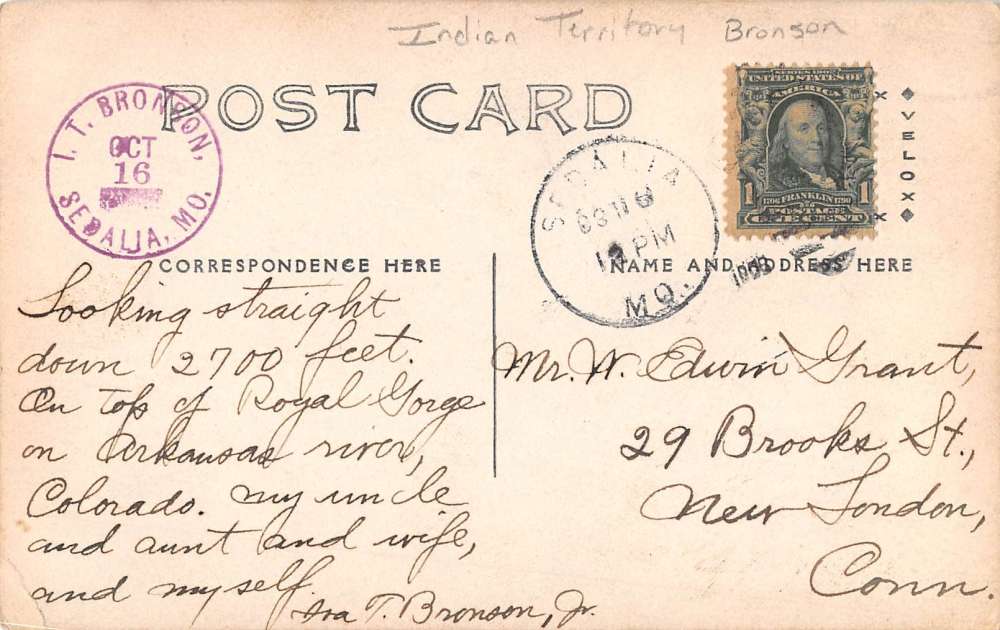 Indian Territory Bronson
POST CARD
I. T. BRONSON,
OCT
16
SEDALIA, MO.
SEDALIA
PM
MO.
SERIES 1902
UNITED STATES OF
AMERICA
1 1
1706 FRANKLIN 1790
POSTAGE
ONE CENT
VELOX
CORRESPONDENCE HERE
NAME AND ADDRESS HERE
Looking straight
down 2700 feet.
On top of Royal Gorge
on Arkansas river,
Colorado. my uncle
and aunt and wife,
and myself.
Ira T. Bronson, Jr.
Mr. W. Edwin Grant,
29 Brooks St.,
New London,
Conn.